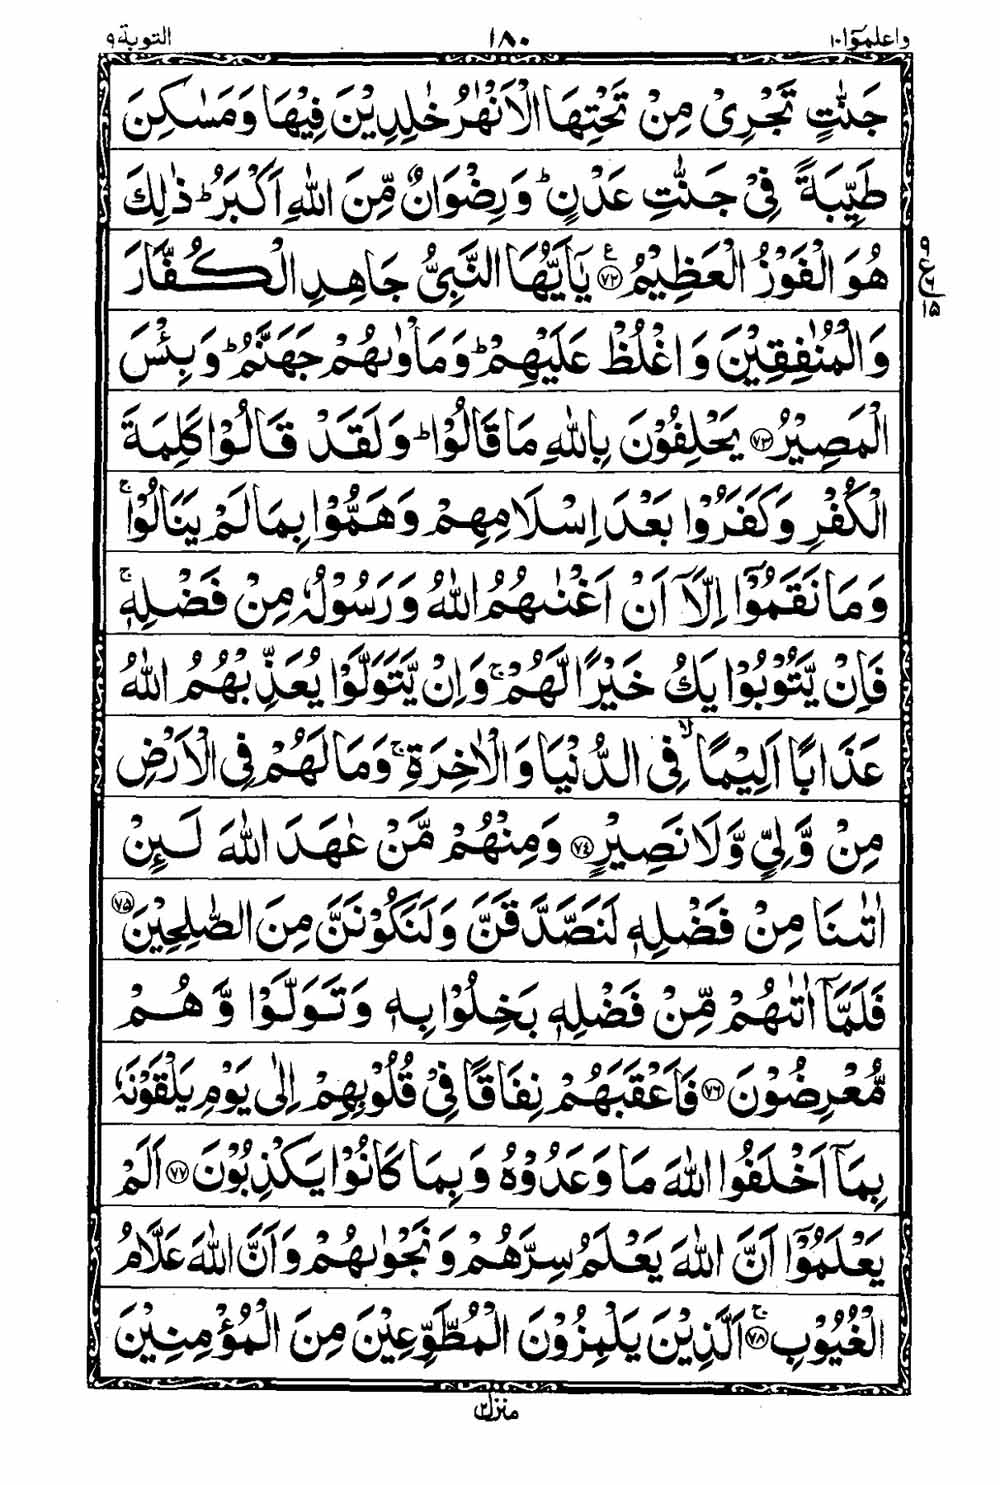 واعلموا ١٠ ١٨٠ التوبة ٩
جَنّٰتٍ تَجْرِیْ مِنْ تَحْتِهَا الْاَنْهٰرُ خٰلِدِیْنَ فِیْهَا وَمَسٰكِنَ
طَیِّبَةً فِیْ جَنّٰتِ عَدْنٍ ؕ وَرِضْوَانٌ مِّنَ اللّٰهِ اَكْبَرُ ؕ ذٰلِكَ
هُوَ الْفَوْزُ الْعَظِیْمُ ﴿۷۲﴾ ع یٰۤاَیُّهَا النَّبِیُّ جَاهِدِ الْكُفَّارَ
٩ ع ٦ ١٥
وَالْمُنٰفِقِیْنَ وَاغْلُظْ عَلَیْهِمْ ؕ وَمَاْوٰىهُمْ جَهَنَّمُ ؕ وَبِئْسَ
الْمَصِیْرُ ﴿۷۳﴾ یَحْلِفُوْنَ بِاللّٰهِ مَا قَالُوْا ؕ وَلَقَدْ قَالُوْا كَلِمَةَ
الْكُفْرِ وَكَفَرُوْا بَعْدَ اِسْلَامِهِمْ وَهَمُّوْا بِمَا لَمْ یَنَالُوْا ۚ
وَمَا نَقَمُوْۤا اِلَّاۤ اَنْ اَغْنٰىهُمُ اللّٰهُ وَرَسُوْلُهٗ مِنْ فَضْلِهٖ ۚ
فَاِنْ یَّتُوْبُوْا یَكُ خَیْرًا لَّهُمْ ۚ وَاِنْ یَّتَوَلَّوْا یُعَذِّبْهُمُ اللّٰهُ
عَذَابًا اَلِیْمًا ۙ فِی الدُّنْیَا وَالْاٰخِرَةِ ۚ وَمَا لَهُمْ فِی الْاَرْضِ
مِنْ وَّلِیٍّ وَّلَا نَصِیْرٍ ﴿۷۴﴾ وَمِنْهُمْ مَّنْ عٰهَدَ اللّٰهَ لَىِٕنْ
اٰتٰىنَا مِنْ فَضْلِهٖ لَنَصَّدَّقَنَّ وَلَنَكُوْنَنَّ مِنَ الصّٰلِحِیْنَ ﴿۷۵﴾
فَلَمَّاۤ اٰتٰىهُمْ مِّنْ فَضْلِهٖ بَخِلُوْا بِهٖ وَتَوَلَّوْا وَّهُمْ
مُّعْرِضُوْنَ ﴿۷۶﴾ فَاَعْقَبَهُمْ نِفَاقًا فِیْ قُلُوْبِهِمْ اِلٰی یَوْمِ یَلْقَوْنَهٗ
بِمَاۤ اَخْلَفُوا اللّٰهَ مَا وَعَدُوْهُ وَبِمَا كَانُوْا یَكْذِبُوْنَ ﴿۷۷﴾ اَلَمْ
یَعْلَمُوْۤا اَنَّ اللّٰهَ یَعْلَمُ سِرَّهُمْ وَنَجْوٰىهُمْ وَاَنَّ اللّٰهَ عَلَّامُ
الْغُیُوْبِ ﴿۷۸﴾ ۚ اَلَّذِیْنَ یَلْمِزُوْنَ الْمُطَّوِّعِیْنَ مِنَ الْمُؤْمِنِیْنَ
منزل ٢